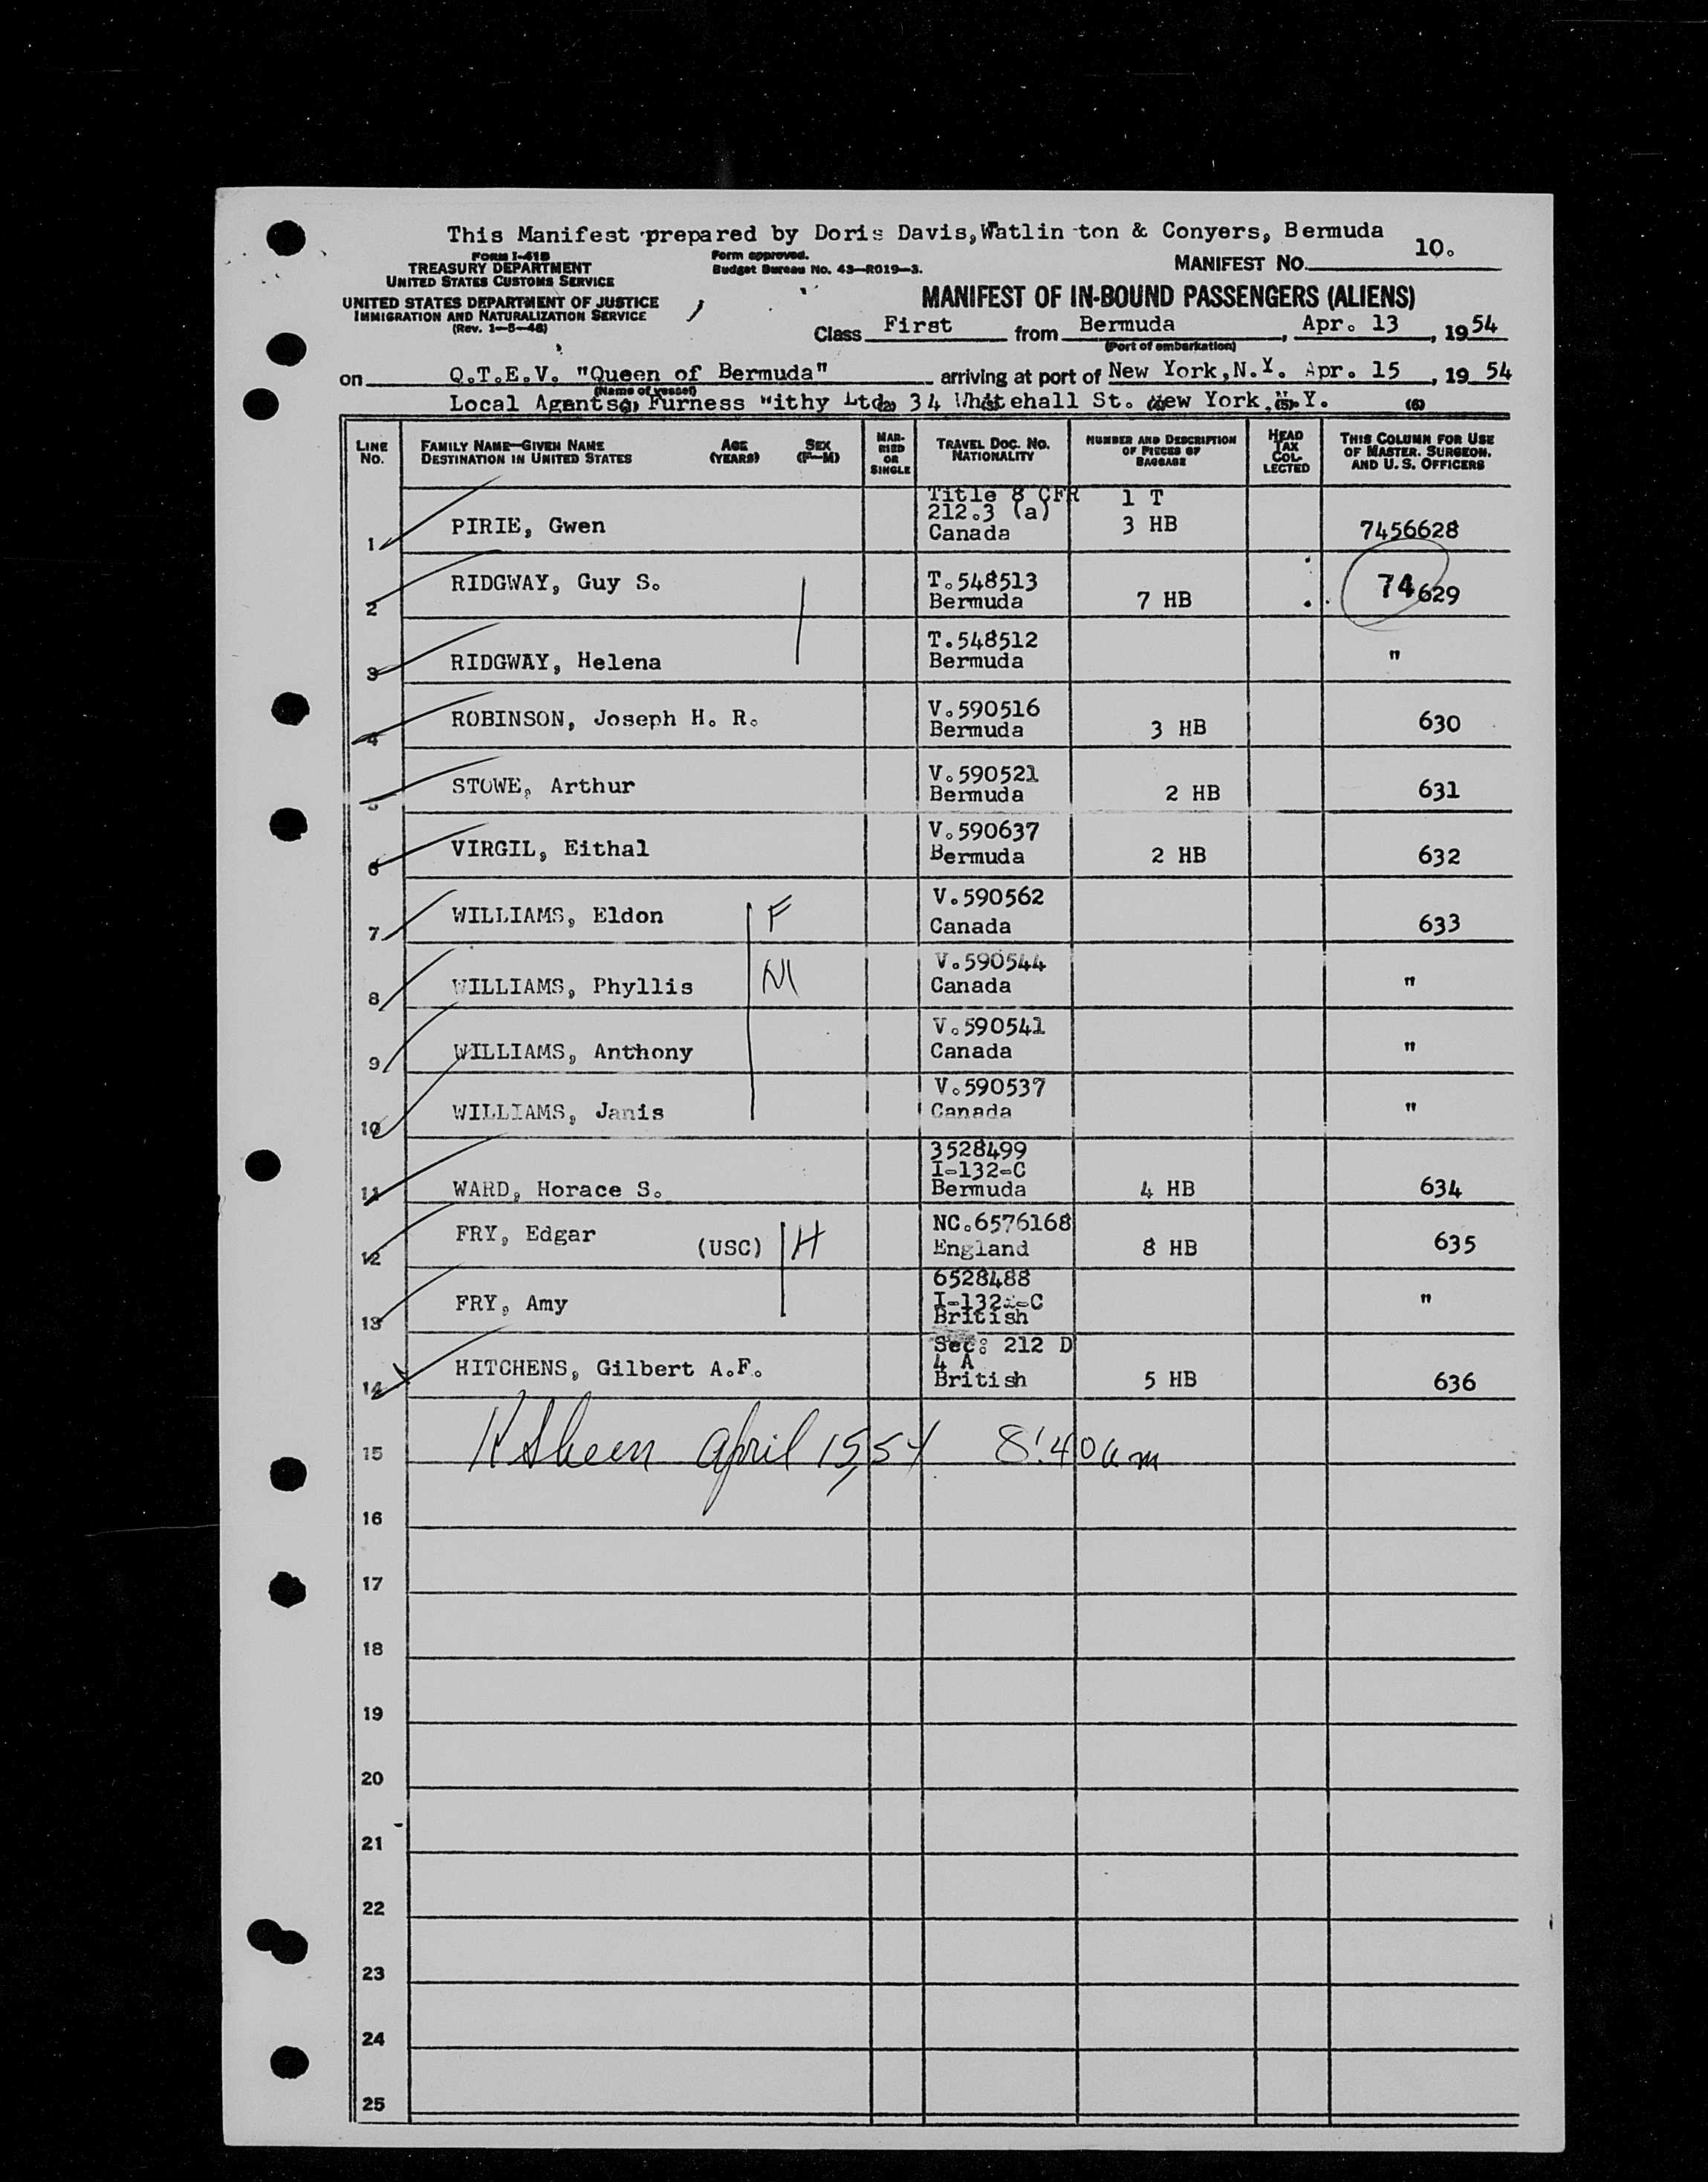 This Manifest prepared by Doris Davis, Watlin ton & Conyers, Bermuda
FORM I-418
TREASURY DEPARTMENT
UNITED STATES CUSTOMS SERVICE
UNITED STATES DEPARTMENT OF JUSTICE
IMMIGRATION AND NATURALIZATION SERVICE
(Rev. 1-5-48)
Form approved.
Budget Bureau No. 43-R019-3.
MANIFEST NO. 10.
MANIFEST OF IN-BOUND PASSENGERS (ALIENS)
Class First from Bermuda, Apr. 13, 1954
(Port of embarkation)
on Q.T.E.V. "Queen of Bermuda" arriving at port of New York, N.Y. Apr. 15, 1954
(Name of vessel)
Local Agents, Furness Withy Ltd. 34 Whitehall St. New York, N.Y. (6)
LINE NO. FAMILY NAME—GIVEN NAME DESTINATION IN UNITED STATES AGE (YEARS) SEX (F—M) MARRIED OR SINGLE TRAVEL DOC. NO. NATIONALITY NUMBER AND DESCRIPTION OF PIECES OF BAGGAGE HEAD TAX COLLECTED THIS COLUMN FOR USE OF MASTER, SURGEON, AND U. S. OFFICERS
1 PIRIE, Gwen Title 8 CFR 212.3 (a) Canada 1 T 3 HB 7456628
2 RIDGWAY, Guy S. T.548513 Bermuda 7 HB 74 629
3 RIDGWAY, Helena T.548512 Bermuda "
4 ROBINSON, Joseph H. R. V.590516 Bermuda 3 HB 630
5 STOWE, Arthur V.590521 Bermuda 2 HB 631
6 VIRGIL, Eithal V.590637 Bermuda 2 HB 632
7 WILLIAMS, Eldon F V.590562 Canada 633
8 WILLIAMS, Phyllis M V.590544 Canada "
9 WILLIAMS, Anthony V.590541 Canada "
10 WILLIAMS, Janis V.590537 Canada "
11 WARD, Horace S. 3528499 I-132-C Bermuda 4 HB 634
12 FRY, Edgar (USC) H NC.6576168 England 8 HB 635
13 FRY, Amy 6528488 I-132-C British "
14 HITCHENS, Gilbert A.F. Sec: 212 D 4 A British 5 HB 636
15 April 15, 54 8:40 am
16
17
18
19
20
21
22
23
24
25